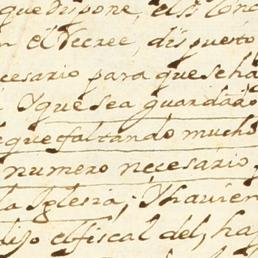 que dispone, el S.r Con
el Decree, dispuerto
cesario para que se ha
Y que sea guardado
que faltando mucho
numero necesario
la Iglesia; Y havien
dijo el fiscal del, ha